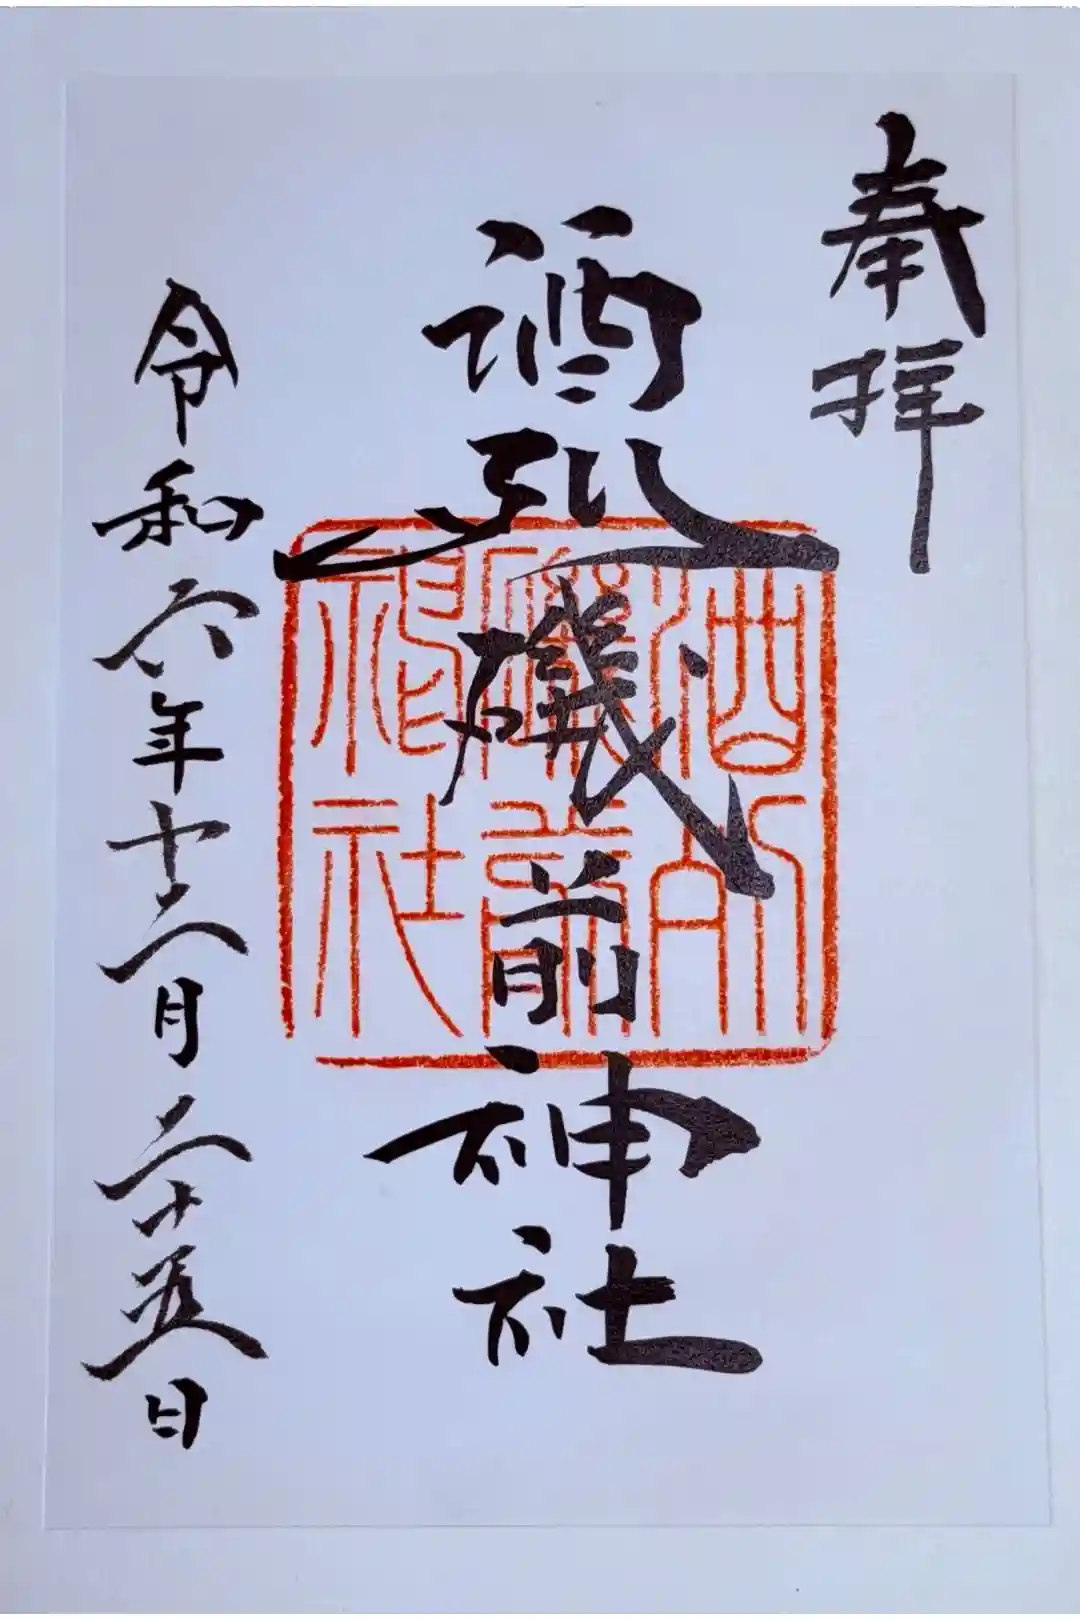 奉拝
酒列磯前神社
酒列
磯前
神社
令和六年十二月二十五日